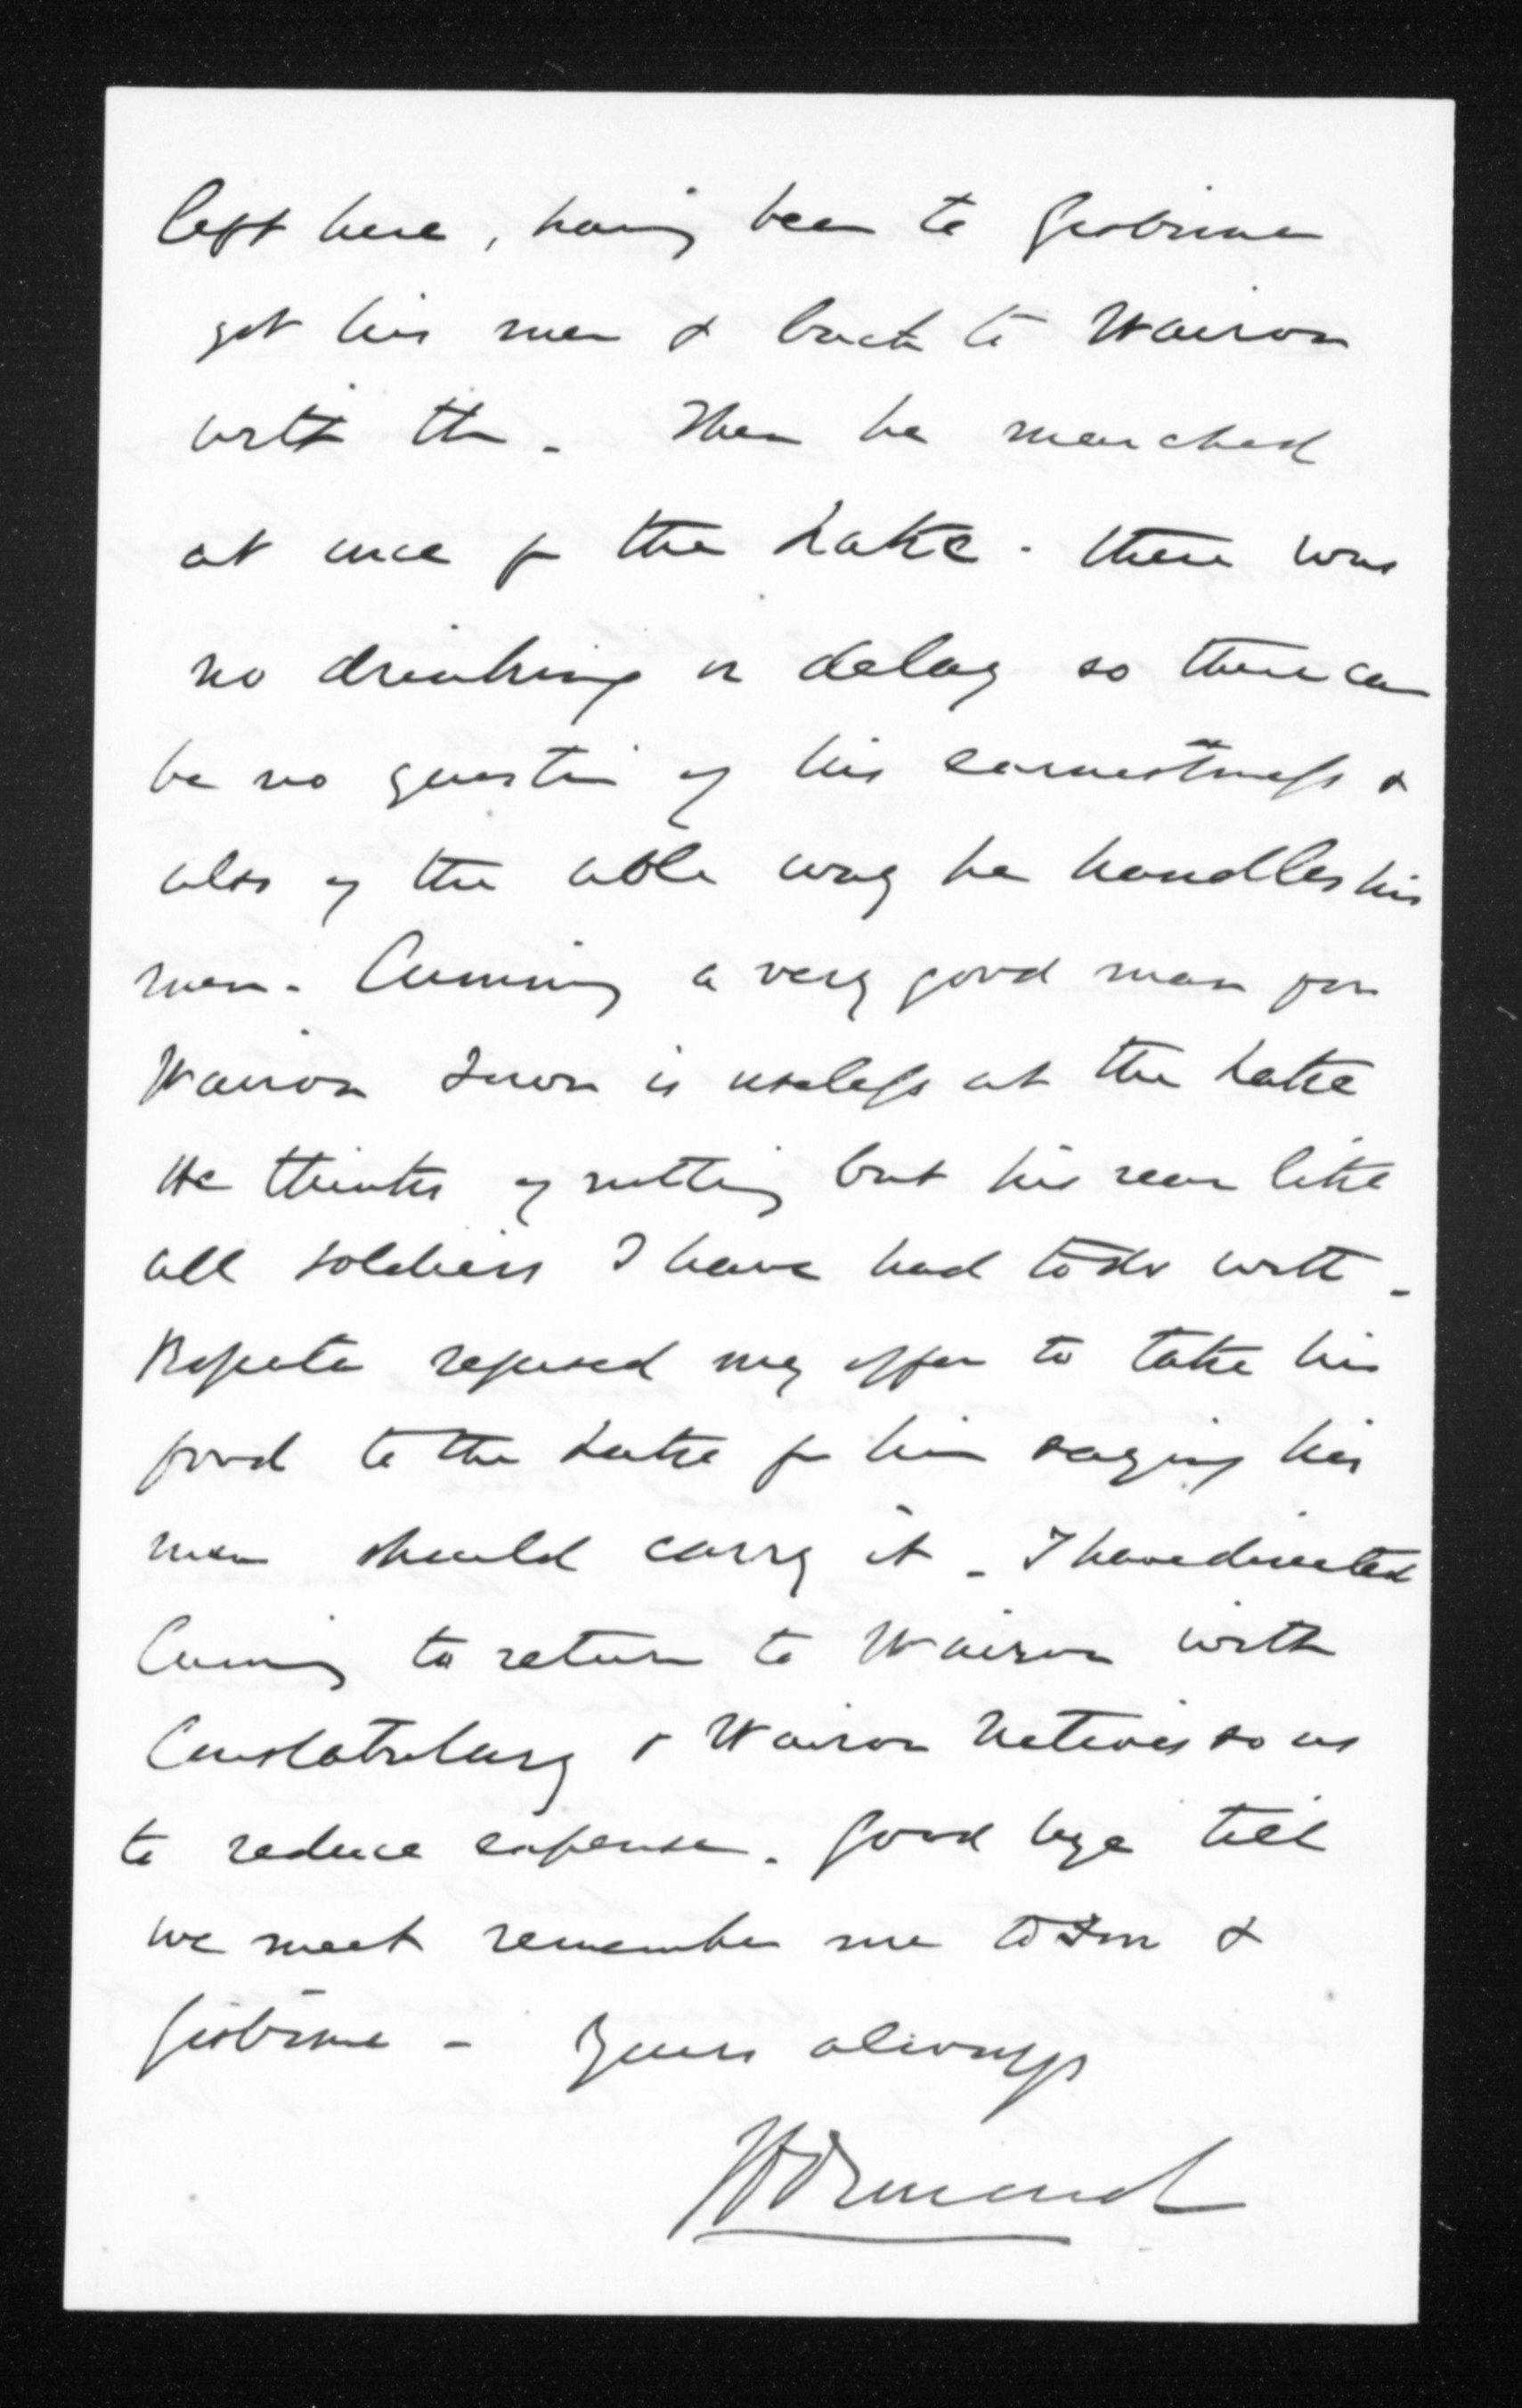 left here, having been to Gisborne
got his men & back to Wairoa
with th - Then he marched
at once for the Lake - there was
no drinking or delay so there can
be no question of his earnestness &
also of the able way he handles his
men - Cumming a very good man for
Wairoa is useless at the Lake
He thinks of nothing but his rear like
all soldiers I have had to do with -
Ropata refused my offer to take his
food to the Lake for him saying his
men should carry it - I have directed
Cuming to return to Wairoa with
Constabulary & Wairoa Natives so as
to reduce expense. Good bye till
we meet remember me to &
Gisborne - Yours always
JDOrmond